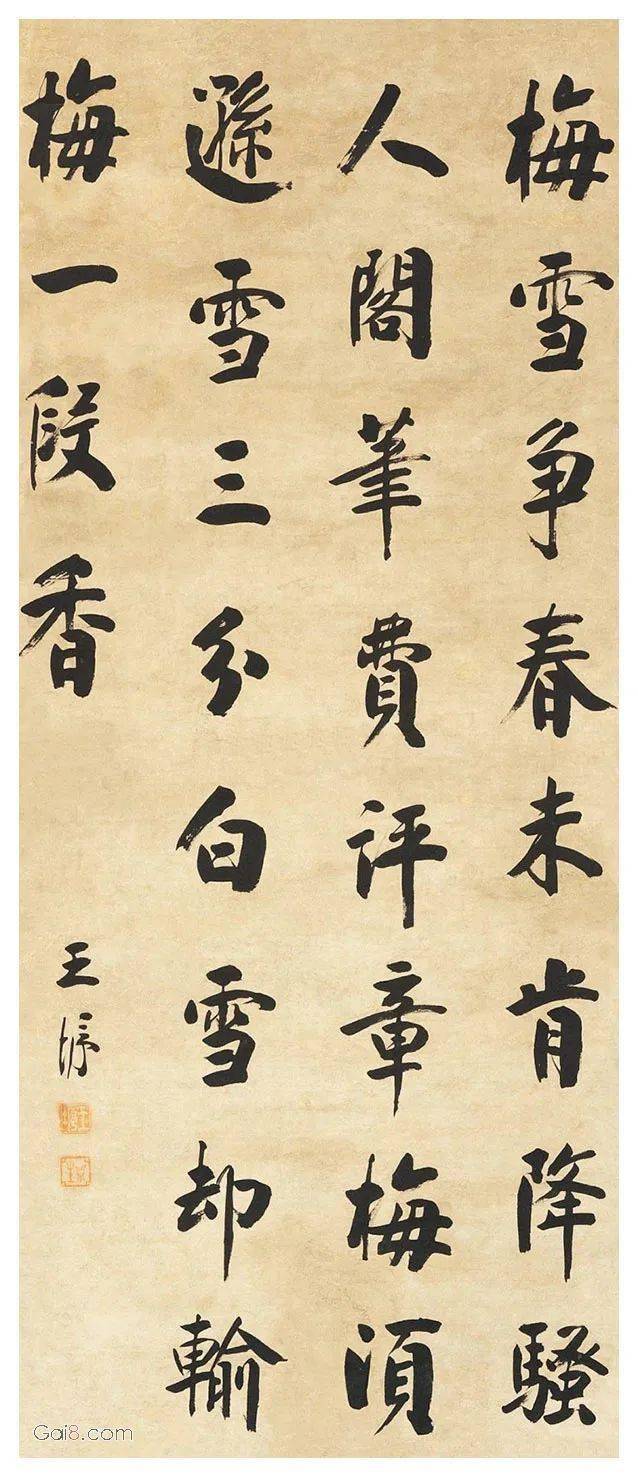 梅雪争春未肯降騷
人閣筆費評章梅湏
遜雪三分白雪却輸
梅一段香
王垿
Gai8.com